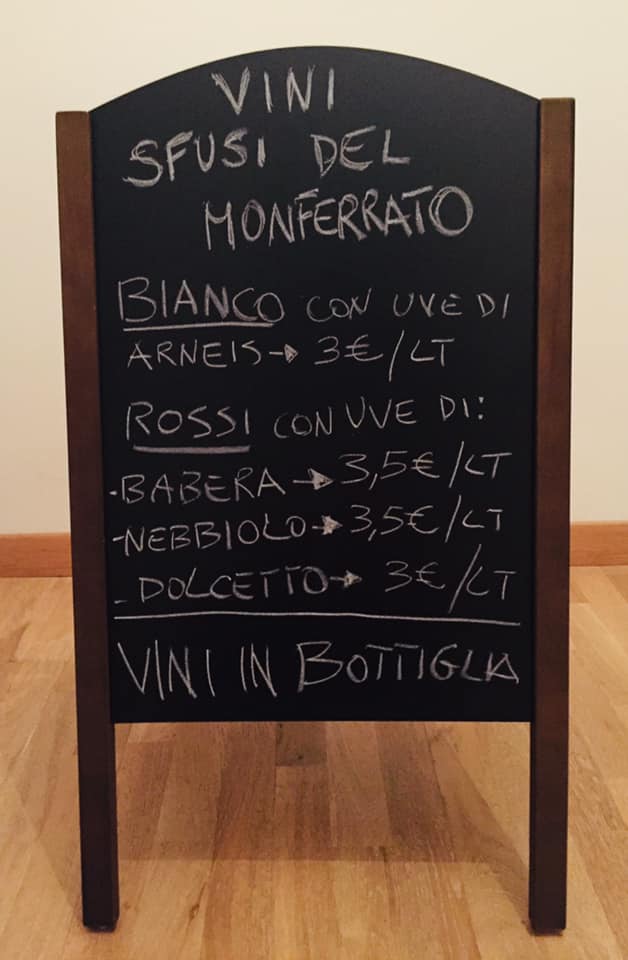 VINI
SFUSI DEL
MONFERRATO
BIANCO CON UVE DI
ARNEIS→ 3€/LT
ROSSI CON UVE DI:
-BABERA→3,5€/LT
-NEBBIOLO→3,5€/LT
-DOLCETTO→ 3€/LT
VINI IN BOTTIGLIA